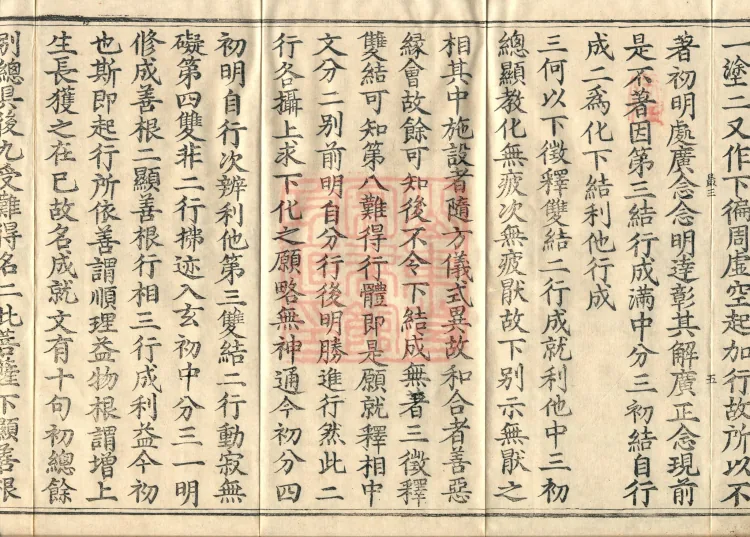 一塗二又作下徧周虛空起加行故所以不
最三 五
著初明處廣念念明達彰其解廣正念現前
是不著因第三結行成滿中分三初結自行
成二爲化下結利他行成
三何以下徵釋雙結二行成就利他中三初
總顯教化無疲次無疲猒故下別示無猒之
相其中施設者隨方儀式異故和合者善惡
緣會故餘可知後不令下結成無著三徵釋
雙結可知第八難得行體即是願就釋相中
文分二別前明自分行後明勝進行然此二
行各攝上求下化之願略無神通今初分四
初明自行次辨利他第三雙結二行動寂無
礙第四雙非二行拂迹入玄初中分三一明
修成善根二顯善根行相三行成利益今初
也斯即起行所依善謂順理益物根謂增上
生長獲之在已故名成就文有十句初總餘
別總具後九受難得名二此菩薩下顯善根